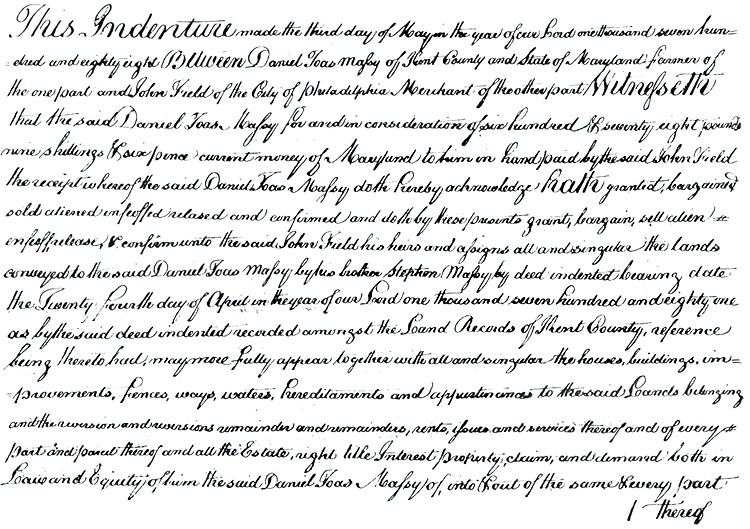 This Indenture made the third day of May in the year of our Lord one thousand seven hun=
=dred and eighty eight Between Daniel Toas Massy of Kent County and State of Maryland farmer of
the one part and John Field of the City of Philadelphia Merchant of the other part Witnesseth
that the said Daniel Toas Massy for and in consideration of six hundred & seventy eight pounds
nine shillings & six pence current money of Maryland to him in hand paid by the said John Field
the receipt whereof the said Daniel Toas Massy doth hereby acknowledge hath granted, bargained
sold aliened infeoffed released and confirmed and doth by these presents grant, bargain, sell alien =
enfeoff, release, & confirm unto the said John Field his heirs and assigns all and singular the lands
conveyed to the said Daniel Toas Massy by his brother Stephen Massy by deed indented bearing date
the Twenty fourth day of April in the year of our Lord one thousand seven hundred and eighty one
as by the said deed indented recorded amongst the Land Records of Kent County, reference
being thereto had, may more fully appear together with all and singular the houses, buildings, im=
=provements, fences, ways, waters, hereditaments and appurtinances to the said Lands belonging
and the reversion and reversions remainder and remainders, rents, issues and services thereof and of every =
part and parcel thereof and all the Estate, right title Interest property, claim, and demand both in
Law and Equity of him the said Daniel Toas Massy of, into & out of the same & every part
thereof